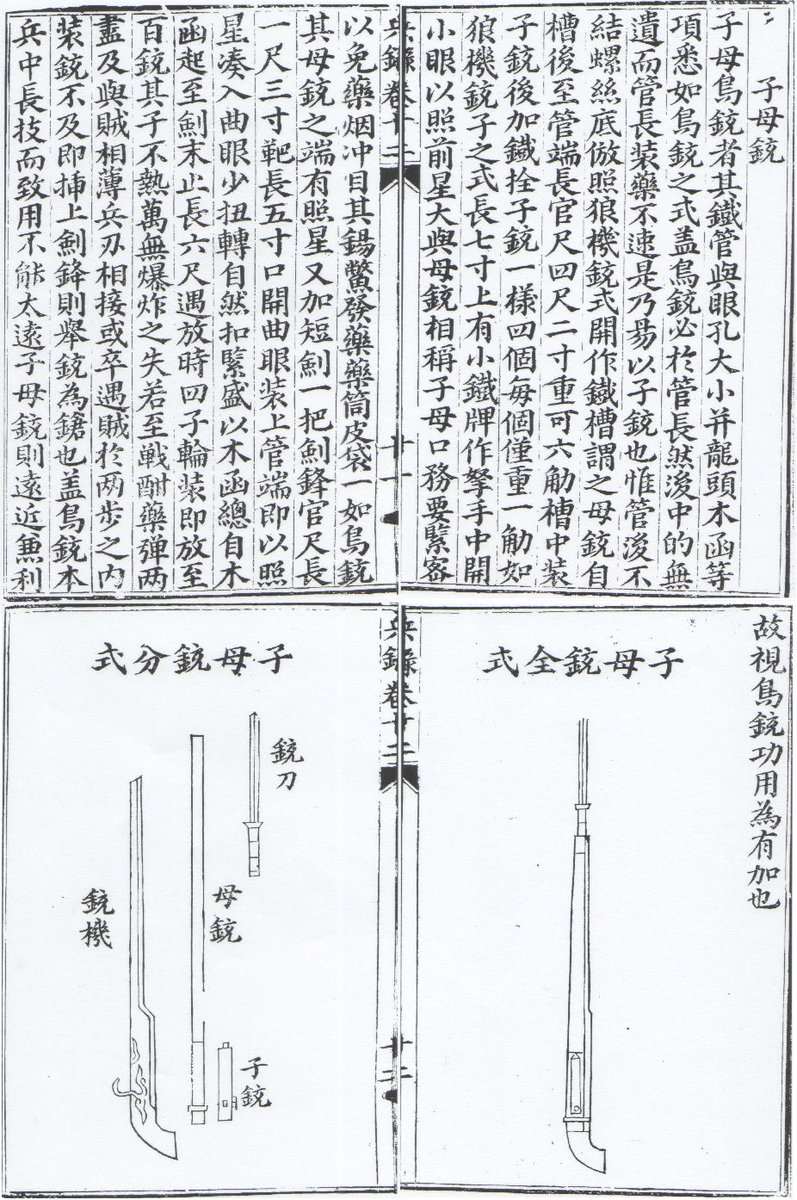 子母銃
子母鳥銃者其鐵管與眼孔大小并龍頭木函等
項悉如鳥銃之式盖鳥銃必於管長然後中的無
遺而管長装藥不速是乃易以子銃也惟管後不
結螺絲底倣照狼機銃式開作鐵槽謂之母銃自
槽後至管端長官尺四尺二寸重可六觔槽中装
子銃後加鐵拴子銃一樣四個每個僅重一觔如
狼機銃子之式長七寸上有小鐵牌作拏手中開
小眼以照前星大與母銃相稱子母口務要緊密
兵錄卷十二
廿一
以免藥烟冲目其錫鱉發藥藥筒皮袋一如鳥銃
其母銃之端有照星又加短劍一把劍鋒官尺長
一尺三寸靶長五寸口開曲眼装上管端即以照
星凑入曲眼少扭轉自然扣緊盛以木函總自木
函起至劍末止長六尺遇放時四子輪装即放至
百銃其子不熱萬無爆炸之失若至戰酣藥弹两
盡及與賊相薄兵刃相接或卒遇賊於两步之内
装銃不及即揷上劍鋒則舉銃為鎗也盖鳥銃本
兵中長技而致用不能太遠子母銃則遠近兼利
故視鳥銃功用為有加也
子母銃全式
兵錄卷十二
廿二
子母銃分式
銃刀
母銃
子銃
銃機